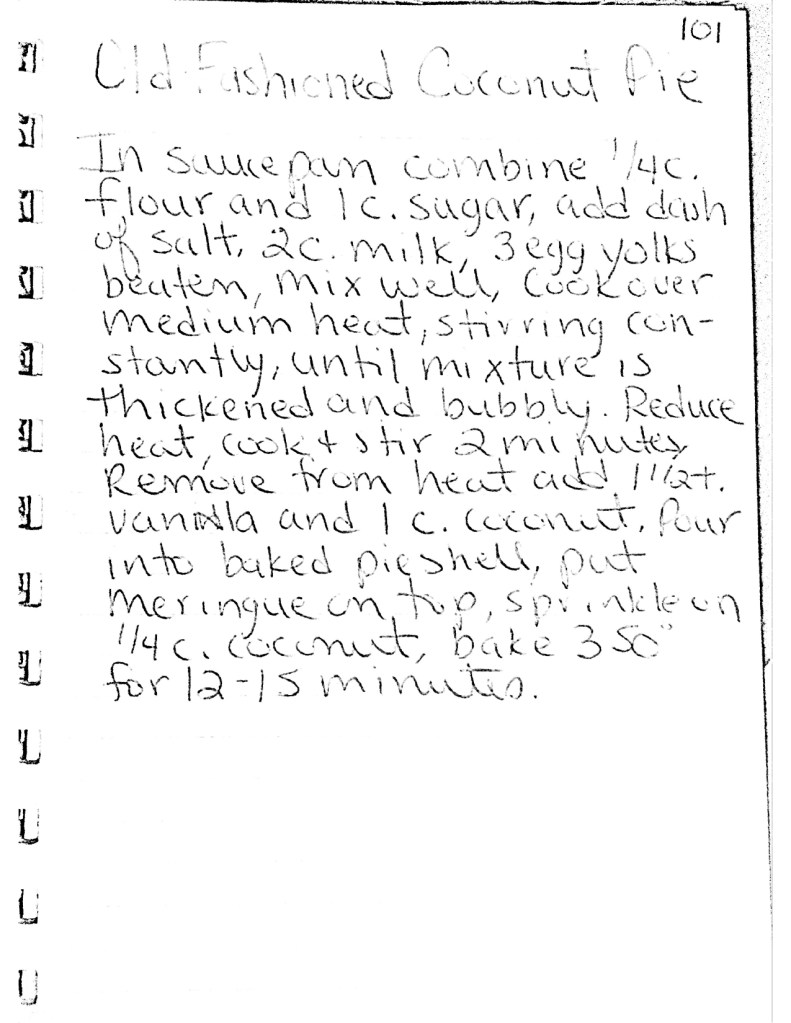 101
Old Fashioned Coconut Pie
In saucepan combine 1/4 c.
flour and 1 c. sugar, add dash
of salt, 2c. milk, 3 egg yolks
beaten, mix well, cook over
medium heat, stirring con-
stantly, until mixture is
thickened and bubbly. Reduce
heat, cook + stir 2 minutes,
Remove from heat add 1 1/2 t.
vanilla and 1 c. coconut. Pour
into baked pie shell, put
meringue on top, sprinkle on
1/4 c. coconut, bake 350°
for 12-15 minutes.